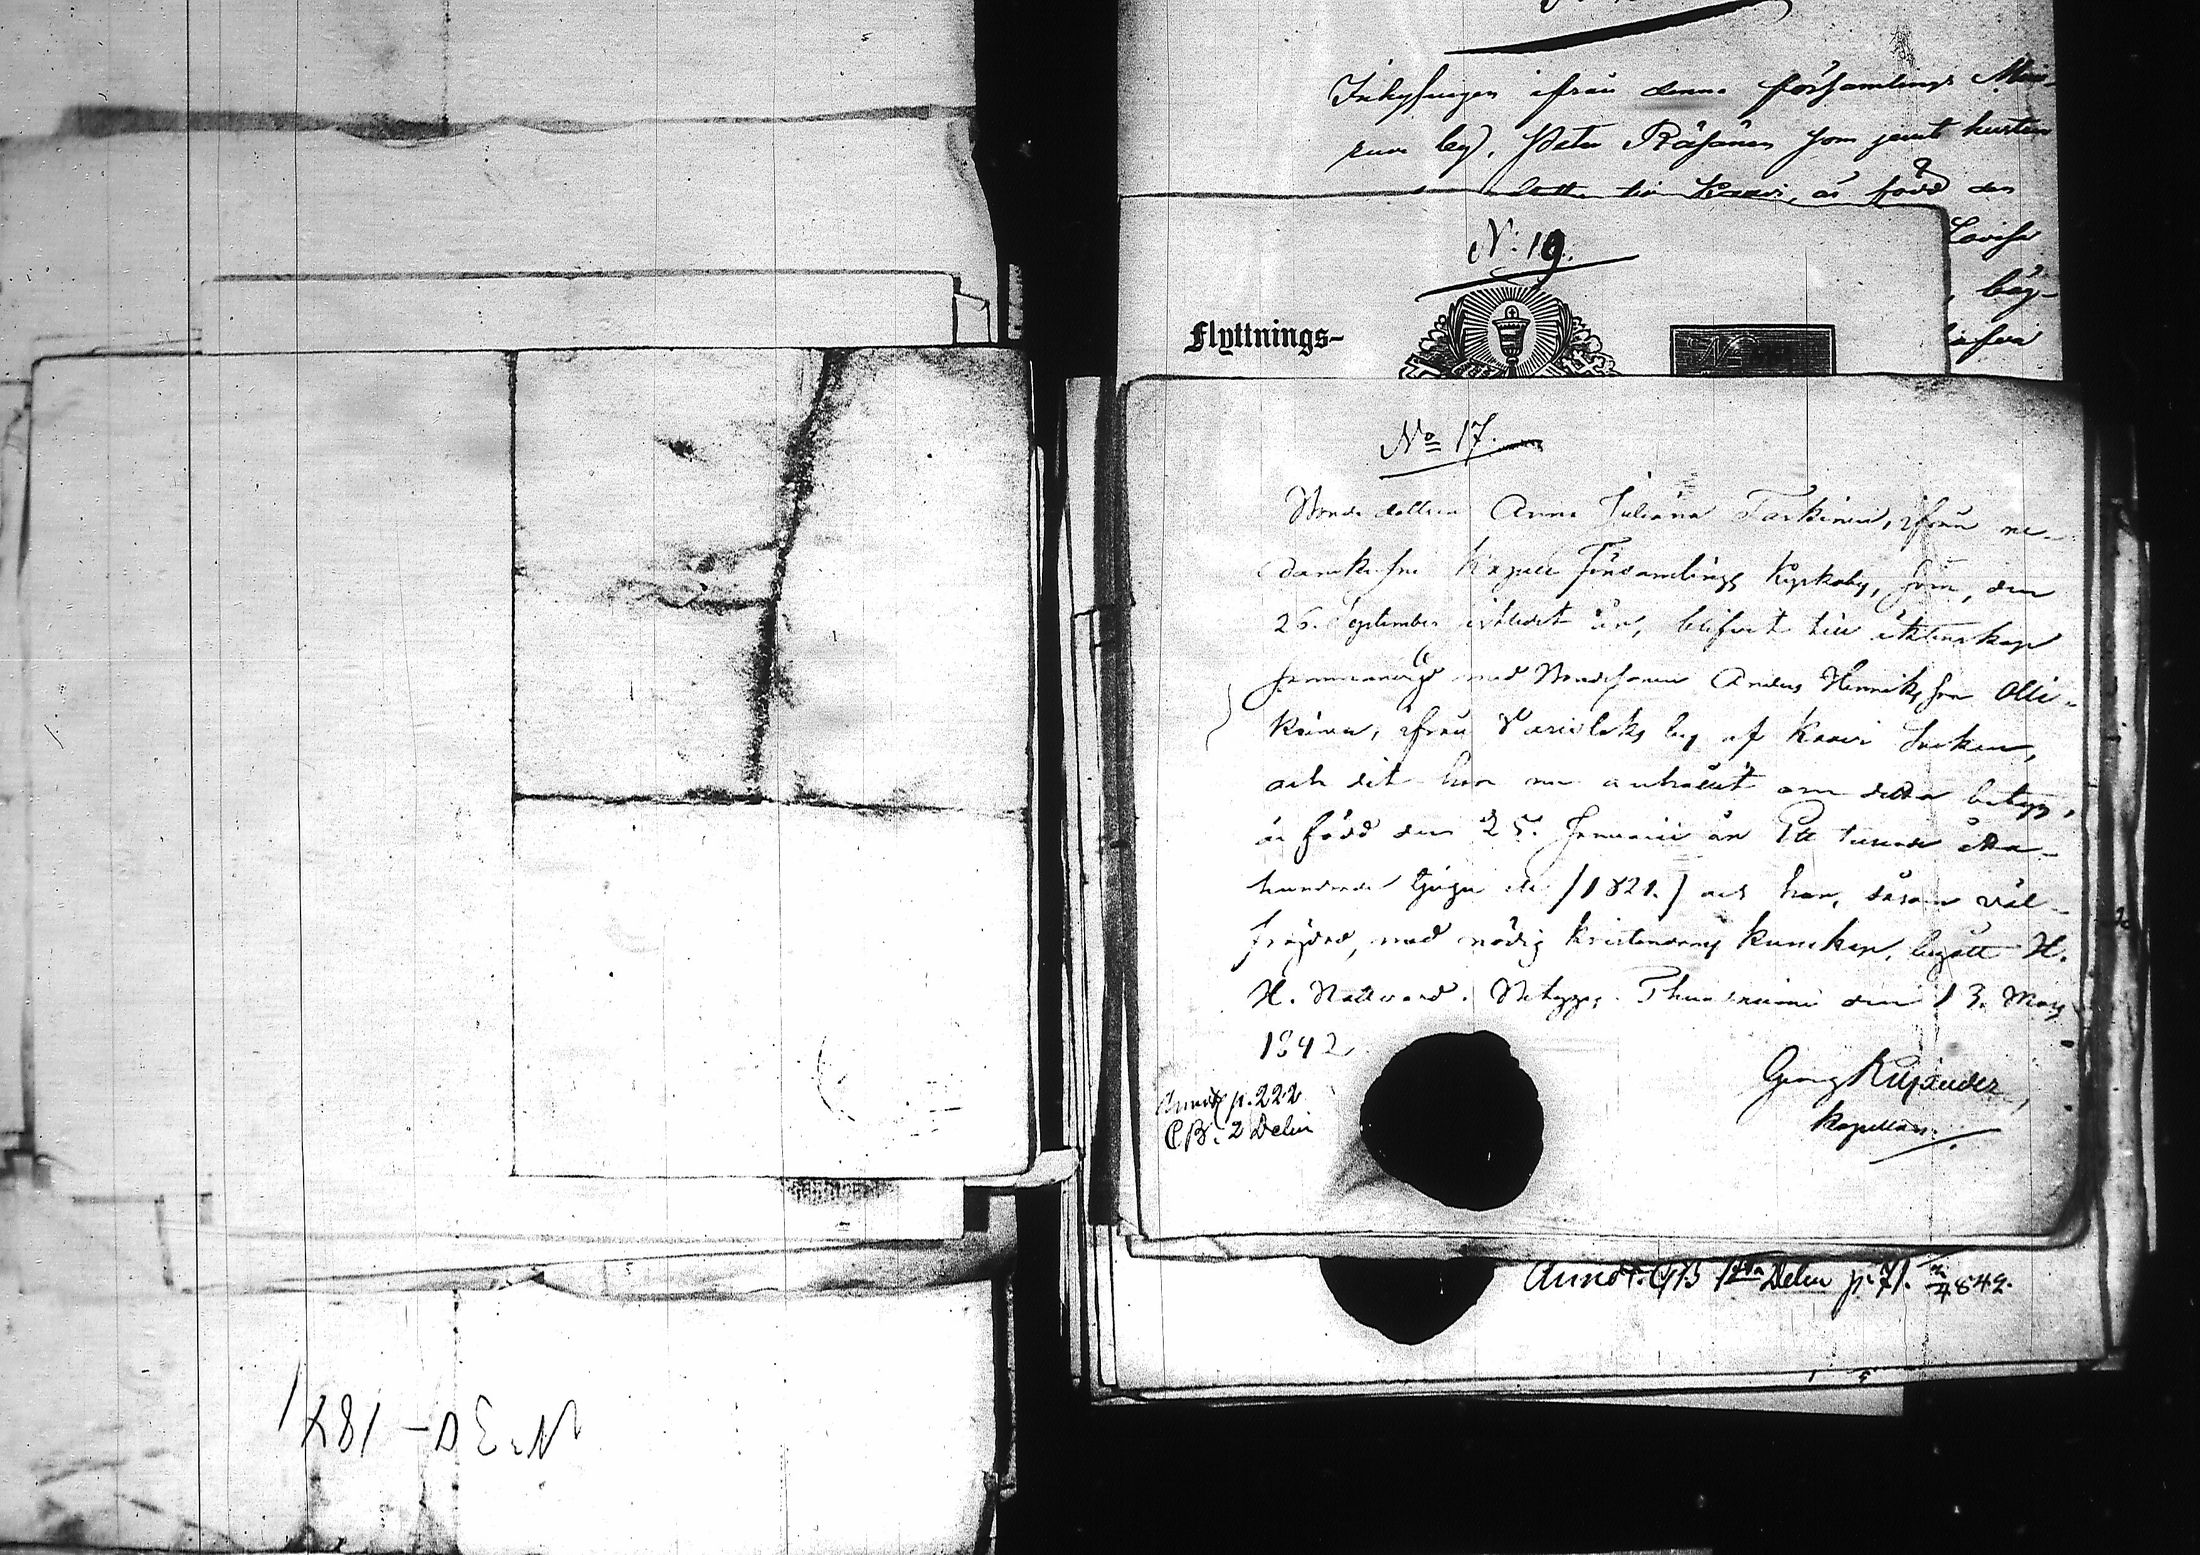 Inhysingen ifrån denna församlings
by, Peter Räsänen som jemt hustru
till Kaavi, är född den
Lovisa
N:19.
Flyttnings-
No 17.
Bondedottren Anna Juliana Tarkinen, ifrån ne-
danskrifne Kapell Församlings Kyrkoby, som, den
26. September sistledet år, blifvit till äktenskap
sammanvigd med Bondesonen Anders Henriksson Olli-
kainen, ifrån by af Kaavi Socken,
och dit hon nu anhållit om detta betyg,
är född den 25. Januarii år Ett tusende åtta-
hundrade tjugu ett (1821.) och har, såsom väl-
fräjdad, med nödig kristendoms kunskap, begått H.
H. Nattvard. Betygar. Thusniemi den 13. Maij
1842
Georg Kyander,
Kapellan.
Annot p. 222
CB. 2 Delen
Annot. CB 1sta Delen p. 71.
N:30-1871